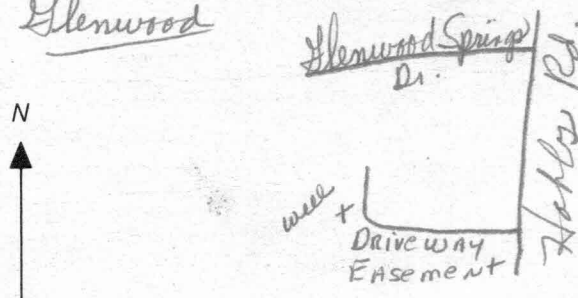 Glenwood
Glenwood Springs
Dr.
N
well
DRIVEWAY
EASEMENT
Rd.